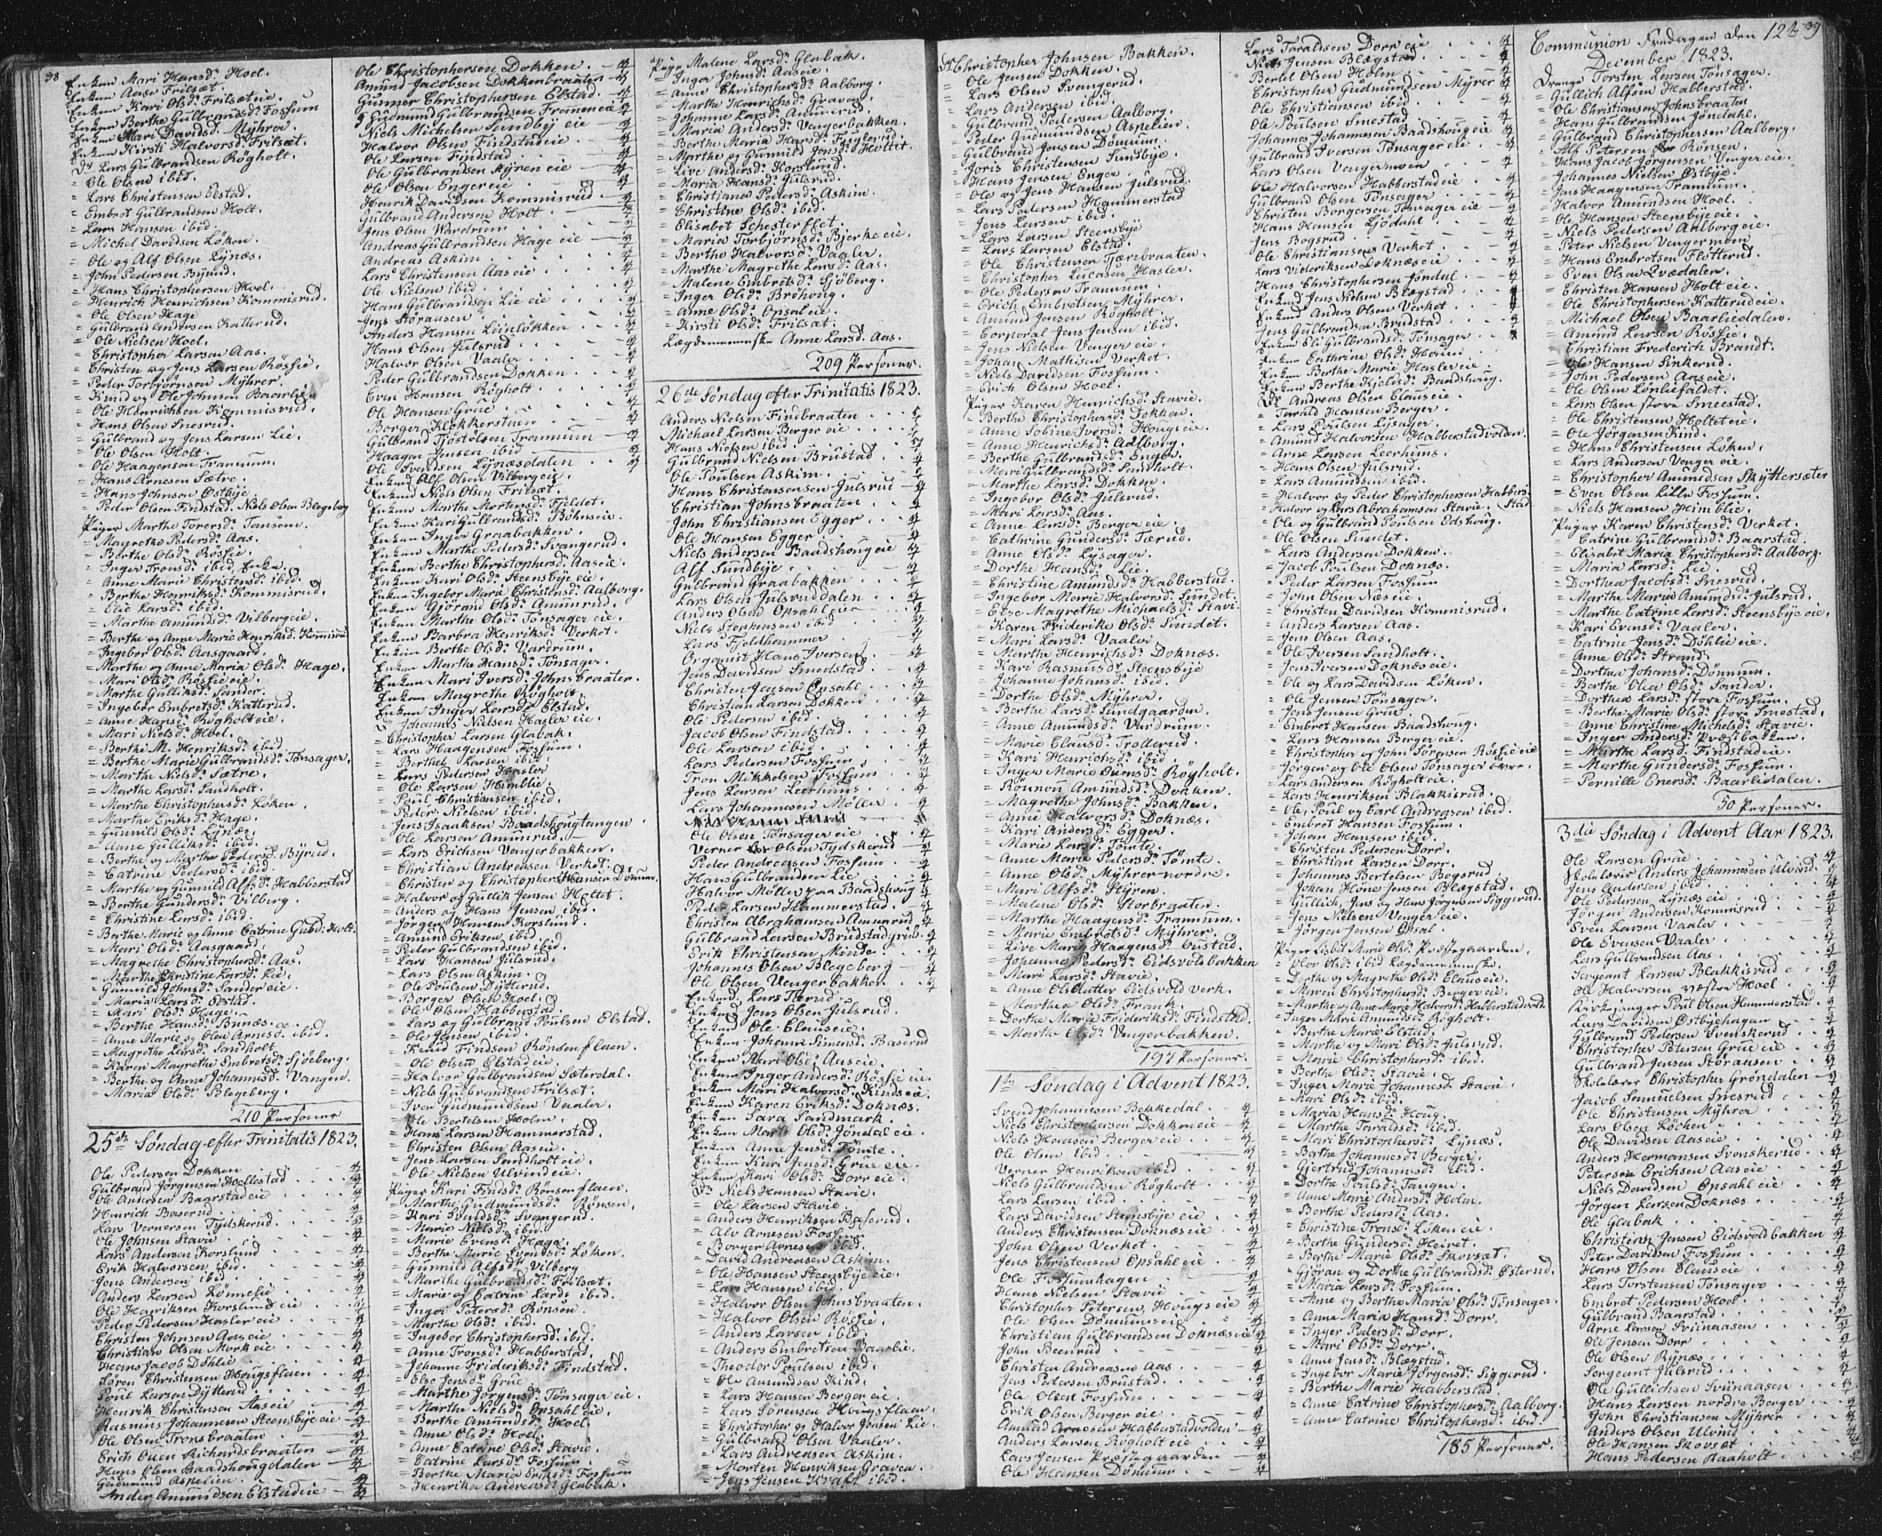 38
Enken Mari Hansd. Hoel.
Enken Aase Frilsæt.
Enken Kari Olsd. Frilsæteie.
Enken Berthe Gulbrandsd. Fossum
Enken Mari Davidsd. Mÿhrer.
Enken Kirsti Halvorsd. Frilsæt.
Lars Gulbrandsen Rögholt.
= Ole Olsen ibid.
= Lars Christensen Elstad.
= Embret Gulbrandsen Holt.
= Lars Hansen ibid.
= Michel Davidsen Løken.
= Ole og Alf Olsen Lÿnæs.
= John Pedersen
= Hans Christophersen Hoel.
= Henrich Henrichsen Kommisrud.
= Ole Olsen Hage
= Gulbrand Andersen Katterud.
= Ole Nielsen Hoel.
= Christopher Larsen Aas.
= Christen og Jens Larsen Røsfie.
= Peder Torbjørnsen Mÿhrer.
= Knud og Ole Johnsen Baarlie
= Ole Henrichsen Kommisrud.
= Hans Olsen Snesrud.
= Gulbrand og Jens Larsen Lie.
= Ole Olsen Holt.
= Ole Haagensen Tramum.
= Hans Arnesen Sætre.
= Hans Johnson Østbye
= Peder Olsen Findstad. Niels Olsen Blegeberg
Piger Marthe
= Magrethe Pedersd. Aas.
= Berthe Olsd. Røsfie.
= Inger Tronsd. ibid. Enke.
= Anne Marie Christensd. ibid.
= Berthe Henriksd. Kommisrud.
= Elie Larsd. ibid.
= Marthe Amundsd. Vilbergeie.
= Berthe og Anne Marie Henriksd. Komisrud
= Ingebor Olsd. Aasgaard.
= Marthe og Anne Maria Olsd. Hage.
= Mari Olsd. Røsfieeie.
= Marthe Gulliksd. Sander.
= Ingebor Embretsd. Katterud.
= Anne Hansd. Rögholteie.
= Mari Nielsd. Hoel.
= Berthe M. Henriksd. ibid
= Berthe Marie Gulbrandsd. Tønsager.
= Marthe Nielsd. Sætre.
= Marthe Larsd. Sundholt.
= Marthe Christophersd. Løken.
= Marthe Eriksd. Hage.
= Gunnild Olsd. Lÿnæs.
= Anne Gulliksd. ibid.
= Berthe og Marthe Pedersd. Bÿrud.
= Catrine Pedersd. ibid.
= Marthe og Gunnild Alfsd. Habberstad
= Berthe Gundersd. Vilberg.
= Christine Larsd. ibid.
= Berthe Marie og Anne Catrine Gulbd. Holt.
= Mari Olsd. Aasgaard.
= Magrethe Christophersd. Aas.
= Marthe Christine Larsd. Lie.
= Gunnild Johnsd. Sandereie.
= Maria Larsd. Elstad.
= Mari Olsd. Hage.
= Berthe Hansd. Tønnæs.
= Anne Marie og Olea Arnesd. ibid
= Magrethe Larsd. Sundholt
= Karen Magrethe Embretsd. Sjøeberg.
= Berthe og Anne Johannesd. Vangen.
= Maria Olsd. Blegeberg.
210 Personer
25de Søndag efter Trinitatis 1823.
Ole Pedersen Dokken
Gulbrand Jørgensen Hoellestad
Ole Andersen Baarstadeie
Henrich Baserud
Lars Vernersen Tÿdskerud
Ole Johnsen Stavie
Lars Andersen Korslund
Erik Halvorsen ibid.
Jens Andersen ibid.
Anders Larsen Lømelie
Ole Henriksen Korslundeie
Peder Pedersen Haslereie
Christen Johnsen Aaseie
Christian Olsen Morkeie
Hans Jacob Döhlie
Søren Christensen Hougsflaen
Poul Larsen Dÿtterud
Henrik Christensen Aaseie
Rasmus Johannesen Steensbÿeie
Ole Olsen Tronsbraaten
Erich Euen Richardsbraaten
Hans Olsen Baadshougdalen
Gudmund Aspelien
Ander Amundsen Elstadeie
Ole Christophersen Dokken
Amund Jacobsen Dokkenbraaten
Gunner Christophersen Elstad
Gudmund Gulbrandsen Tramumeie
Niels Michelsen Sundbÿeie
Halvor Olsen Findstadeie
Ole Larsen Findstad
Ole Gulbrandsen Stÿreneie
Ole Olsen Engereie
Henrik Davidsen Kommisrud
Gulbrand Andersen Holt
Jens Olsen Wardrum
Andreas Gulbrandsen Hageeie
Andreas Askim
Lars Christensen Aaseie
Ole Nielsen ibid.
Hans Gulbrandsen Lieeie
Jens Støraasen
Anders Hansen Leinløkken
Hans Olsen Julsrud
Halvor Olsen Vaaler
Peder Gulbrandsen Dokken
Even Hansen Rögholt
Ole Hansen Grue
Borger Klokkerstuen
Gulbrand Tjøstolsen Tramum
Haagen Jensen ibid
Ole Svendsen Lÿnæsdalen
Enkemd Alf Olsen Vilbergeie
Enkemd Niels Olsen Frilsæt.
Enken Marthe Mortensd. Fieldet.
Enken Kari Gulbrandsd. Böhnseie.
Enken Inger Graabakken.
Enken Marthe Pedersd. Svangerud.
Enken Berthe Christophersd. Aaseie.
Enken Kari Olsd. Steensbÿeeie.
Enken Ingebor Marie Christensd. Aalborg.
Enken Gjöran Olsd. Amunrud.
Enken Marthe Olsd. Tönsagereie.
Enken Barbra Henriksd. Verket.
Enken Berthe Olsd. Vardrum.
Enken Marthe Hansd. Tönsager.
Enken Mari Iversd. Johnsbraaten.
Enken Magrethe Rögholt.
Enken Inger Larsd. Elstad.
Johannes Nielsen Hasler eie.
= Christopher Larsen Glabak.
= Lars Haagensen Fossum.
= Berthel Larsen ibid.
= Lars Pedersen Hasler
= Ole Larsen Himblie.
= Poul Christiansen ibid.
= Peder Nielsen ibid.
= Jens Isaaksen Baadshougtangen.
= Ole Larsen Amunrud.
= Lars Erichsen Vengerbakken.
= Christian Andreasen Verket.
= Christen og Christopher Hansen Dönnum.
= Halvor og Gullik Jensen Holtet.
= Anders og Hans Jensen ibid.
= Jørgen Hansen Korslund.
= Amund Eriksen ibid.
= Peder Gulbrandsen ibid.
= Lars Hansen Julsrud.
= Lars Olsen Askim.
= Ole Poulsen Dÿtterud.
= Borger Olsen Hoel.
= Ole Olsen Habberstad.
= Lars og Gulbrand Poulsen Elstad.
= Ole Jensen ibid.
= Knud Findsen Rönsenflaen.
= Ole Olsen Elstadeie.
= Halvor Gulbrandsen Sæterdal.
= Niels Gulbrandsen Frilsæt.
= Iver Gudmundsen Vaaler.
= Ole Bertelsen Holm.
= Hans Larsen Hammerstad.
= Christen Olsen Aaseie.
= Jens Larsen Sundholteie.
= Ole Nielsen Ulvindeie.
Piger Kari Findsd. Rönsenflaen.
= Marthe Gudmundsd. Rönsen.
= Kari Svendsd. Svangerud.
= Marie Nilsd. ibid.
= Marie Evensd. Hage.
= Berthe Marie Svendsd. Løken.
= Gunnild Alfsd. Vilberg
= Marthe Gulbrandsd. Frilsæt.
= Marie og Catrine Larsd. ibid.
= Inger Petersd. Rönsen.
= Marthe Olsd. ibid.
= Ingebor Christophersd. ibid.
= Anne Tronsd. Habberstad.
= Johanne Frideriksd. Findstad.
= Else Jensd. Grue.
= Marthe Jørgensd. Tönsager eie.
= Marthe Nielsd. Opsahl eie.
= Berthe Amundsd. Hoel.
= Anne Olsd. Hoel.
= Anne Catrine Olsd. Stavie.
= Catrine Larsd. Fossum.
= Berthe Maria Eriksd. Fossum
= Henrika Andreasd. Glabak.
Piger Malene Larsd. Glabak.
= Inger Johnsd. Aaseie.
= Anne Christophersd. Aalborg.
= Marthe Henrichsd. Graven.
= Johanne Larsd. Amunrud.
= Maria Andersd. Vengerbakken.
= Berthe Maria Hansd. Fislerud.
= Marthe og Gunnild Jensd. Holtet
= Live Andersd. Korslund.
= Maria Hansd. Julsrud.
= Christiana Pedersd. Askim.
= Christine Olsd. ibid.
= Elisabet Schesterflet.
= Maria Torbjørnsd. Bjerkeeie.
= Berthe Halvorsd. Vaaler.
= Marthe Magrethe Larsd. Aas.
= Malene Embretsd. Sjöberg.
= Inger Olsd. Bröhoug.
= Anne Olsd. Opsaleie.
= Kirsti Olsd. Frilsæt.
Lægdemenneske Anne Larsd. Aas.
209 Personer.
26de Søndag efter Trinitatis 1823.
Anders Nielsen Findbraaten
Michael Larsen Bergereie
Hans Nielsen ibid
Gulbrand Nielsen Brustad
Ole Poulsen Askim
Hans Christensen Julsrud
Christian Johnsbraaten
John Christiansen Egger
Ole Hansen Egger
Niels Andersen Baadshougeie
Alf Sundbÿe
Gulbrand Graabakken
Lars Olsen Julsruddalen
Anders Olsen Opsahleie
Niels Stephensen ibid
Lars Fjeldhammer
Organist Hans Iversen
Jens Davidsen Smedstad
Christen Jensen Opsahl
Christian Larsen Dokken
Ole Pedersen ibid.
Jacob Olsen Findstad
Ole Larsen ibid.
Lars Pedersen Fossum
Tron Mikkelsen Fossum
Jens Larsen Leerhuus
Lars Johannesen Møller
Ole Olsen Tönsagereie
Verner Olsen Tydskerud
Peder Andreasen Fossum
Hans Gulbrandsen Lie
Halvor Møller paa Baadshoug
Peder Larsen Hammerstad
Christen Abrahamsen Amunrud
Gulbrand Larsen Brustadgrud.
Erik Christensen Minde
Johannes Olsen Blegeberg
Ole Olsen Vengerbakken
Enkemd Lars Tærud
Enkemd Jens Olsen Julsrud.
Enkemd Ole Elauseie.
Enken Johanne Simensd. Baserud
Enken Kari Olsd. Aaseie.
Enken Inger Andersd. Røsfieeie.
Enken Mari Halvorsd. Kindseie.
Enken Karen Eriksd. Doknæs.
Enken Sara Sandmark.
Enken Marte Olsd. Jöndaleie.
Enken Anne Jensd. Tömte.
Enken Kari Jensd. Grueeie.
Enken Kari Olsd. Dorreie.
Niels Hansen Stavie.
= Ole Larsen Stavie
= Anders Henriksen Baserud.
= Alv Arnesen Fossum
= Borger Arnesen ibid.
= David Andreasen Askim.
= Ole Hansen Steensbÿeeie.
= Lars Hansen ibid.
= Halvor Olsen Johnsbraaten.
= Halvor Olsen Røsfie.
= Anders Larsen ibid.
= Anders Embretsen Baarlie.
= Theodor Poulsen ibid.
= Ole Amundsen Kind.
= Lars Hansen Bergereie.
= Lars Sørensen Hougsflaen.
= Christopher og Halvor Jensen Lie.
= Gulbrand Olsen Vaaler.
= Lars Andreasen Askim.
= Morten Henriksen Graven.
= Jens Jensen Kraft ibid.
Christopher Johnsen Bakken.
= Ole Jensen Dokken.
= Lars Olsen Svangerud
= Lars Andersen ibid.
= Gulbrand Pedersen Aalborg.
= Peder Gudmundsen Aspelien.
= Gulbrand Jensen Dönnum.
= Joris Christensen Sundbÿe.
= Hans Jensen Enger.
= Ole og Jens Hansen Julsrud.
= Lars Pedersen Hammerstad
= Jens Larsen ibid.
= Lars Larsen Steensbÿe
= Lars Larsen Elstad.
= Ole Christensen Tjæribraaten.
= Christopher Lucasen Hasler.
= Ole Pedersen Tramum.
= Erich Embretsen Mÿhrer.
= Amund Jensen Rögholt.
= Corporal Jens Jensen ibid.
= Jens Nielsen Vengereie.
= Johan Mathisen Verket.
= Niels Davidsen Fossum.
= Erich Olsen Hoel.
Piger Karen Henrichsd. Stavie.
= Berthe Christophersd. Dokken.
= Anne Sobine Iversd. Hougseie.
= Anne Henrichsd. Aalborg.
= Berthe Gulbrandsd. Enger.
= Mari Gulbrandsd. Sundholt.
= Marthe Larsd. Dokken.
= Ingebor Olsd. Julsrud.
= Mari Larsd. Aas.
= Anne Larsd. Bergereie.
= Cathrine Gundersd. Tærud.
= Anne Olsd. Lÿsager.
= Dorthe Hansd. Lie.
= Christine Amundsd. Habberstad.
= Ingebor Marie Halvorsd. Sundet.
= Else Magrethe Michaelsd. Stavi.
= Karen Friderike Olsd. Sundet.
= Mari Larsd. Vaaler.
= Marthe Henrichsd. Doknæs.
= Kari Rasmusd. Steensbÿe
= Johanne Johansd. ibid.
= Dorthe Olsd. Mÿhrer.
= Berthe Larsd. Sundgaarden.
= Anne Amundsd. Vardrum.
= Marie Clausd. Trollerud.
= Kari Henrichsd. ibid.
= Inger Marie Rögholt.
= Rönnou Amundsd. Dokken.
= Magrethe Johnsd. Bakken.
= Anne Halvorsd. Doknæs.
= Kari Andersd. Egger.
= Marie Larsd. Tömte.
= Anne Marie Pedersd. Tömte.
= Anne Olsd. Mÿhrer nordre.
= Mari Alfsd. Stÿren.
= Malene Olsd. Storbraaten.
= Marthe Haagensd. Tramum.
= Marie Embretsd. Mÿhrer.
= Live Marie Haagensd. Gustad.
= Johanne Pedersd. Eidsvolsbakken
= Mari Larsd. Stavie.
= Anne Olsdatter Eidsvold verk.
= Marthea Olsd. Frank.
= Dorthe Marie Frideriksd. Findstad.
= Marthe Olsd. Vengerbakken.
197 Personer.
1te Søndag i Advent 1823.
Svend Johannesen Bekkedal
Niels Christophersen Dokkeneie
Niels Hansen Bergereie
Ole Olsen ibid
Verner Henriksen ibid.
Niels Gulbrandsen Rögholt
Lars Larsen ibid.
Lars Davidsen Steensbÿeie
Anders Christensen Doknæseie
John Olsen Verket
Jens Christensen Opsahleie
Ole Fossumhagen
Hans Nielsen Stavie
Christopher Petersen Hougseie
Ole Olsen Dönnumeie
Christian Gulbrandsen Doknæseie
John Beenrud
Christen Andreasen Aas
Jens Pedersen Brustad
Ole Olsen Fossum
Erik Olsen Bergereie
Amund Arnesen Habberstadvolden
Anders Larsen Rögholteie
Lars Jensen Præstegaarden
Ole Hansen Dönnum
Lars Taraldsen Dorreie
Niels Jensen Blegstad
Bertel Olsen Holm
Christopher Gudmundsen Mÿrer
Ole Christiansen ibid
Ole Poulsen Smestad
Johannes Johannesen Baadshougeie
Gulbrand Iversen Tönsagereie
Lars Olsen Vengermoen
Ole Halvorsen Habberstadeie
Gulbrand Olsen Tönsager
Christen Borgersen Tönsagereie
Hans Hansen Ljødahl
Jens Bogsrud
Ole Christiansen Verket
Lars Videriksen Doknæseie
Hans Christophersen Jöndal
Enkemd Jens Nielsen Blegstad
Enkemd Anders Olsen Verket
Jens Gulbrandsen Brudstad
Enken Eli Gulbrandsd. Tönsager
Enken Cathrine Olsd. Horum
Enken Berthe Marie Haslereie.
Enken Berthe Kjelsd. Baadshoug.
Andreas Olsen Elauseie.
= Tarald Hansen Berger.
= Lars Poulsen Lÿsager.
= Amund Halvorsen Habberstadvolden.
= Arne Larsen Leerhuus.
= Hans Olsen Julsrud.
= Lars Amundsen ibid.
= Halvor og Peder Christophersen Habberstad
= Halvor og Lars Abrahamsen Stavie.
= Ole og Gulbrand Poulsen Edshoug.
= Ole Olsen Sundet.
= Lars Andersen Dokken.
= Jacob Poulsen Doknæs.
= Peder Larsen Fossum
= John Olsen Næseie.
= Christen Davidsen Kommisrud.
= Anders Larsen Aas.
= Jens Olsen Aas.
= Ole Iversen Sundholt.
= Jens Iversen Doknæseie.
= Ole og Lars Davidsen Løken.
= Ole Jensen Tönsager.
= Jens Jensen Grue.
= Embret Hansen Baadshoug.
= Lars Hansen Bergereie.
= Christopher og John Sörensen Røsfieeie
= Jörgen og Ole Olsen Tönsager övre.
= Lars Andersen Rögholteie.
= Lars Henriksen Blakkisrud.
= Ole, Poul og Carl Andreasen ibid.
= Embret Hansen Fossum.
= Johan Hansen ibid.
= Christen Pedersen Dorr.
= Christian Larsen Dorr.
= Johannes Bertelsen Bogsrud.
= Johan Höne Jensen Blegstad.
= Gullich, Jens og Hans Jörgensen Siggerud.
= Jens Nielsen Vengereie.
= Jörgen Jensen Opsal.
Piger Lisbet Marie Olsd. Præstegaarden.
= Olor Olsd. ibid Lægdemenneske.
= Dorthe og Magrethe Olsd. Elauseie.
= Maren Christophersd. Bergereie.
= Marthe og Ane Marie Halvorsd. Habberstadvold.
= Inger Marie Amundsd. Rögholt.
= Berthe Marie Elstad.
= Marthe og Mari Olsd. Julsrud.
= Marie Christophersd. ibid.
= Berthe Olsd. Stavie.
= Inger Marie Johannesd. Stavie.
= Mari Olsd. ibid.
= Maria Hansd. Houg.
= Marthe Taraldsd. ibid.
= Mari Christophersd. Lÿnæs.
= Berthe Johannesd. Berger.
= Gjertrud Johannesd. ibid.
= Dorthe Poulsd. Tangen.
= Anne Marie Andersd. Holm.
= Berthe Pedersd. Aas.
= Christine Tronsd. Løkeneie.
= Berthe Gundersd. Heiret.
= Berthe Marie Olsd. Skovsæt.
= Gjöran og Dorthe Gulbrandsd. Østerud.
= Maria Larsd. Fossum.
= Anne og Berthe Maria Olsd. Tönsager.
= Anne Maria Hansd. Dorr.
= Inger Pedersd. Dorr.
= Mari Olsd. Dorr.
= Anne Jensd. Blegstad.
= Ingebor Marie Jörgensd. Siggerud.
= Berthe Marie Habberstad.
= Anne Catrine Christophersd. Aalborg.
= Anne Catrine Christophersd. ibid.
185 Personer.
39
Communion Fredagen den 12te
December 1823.
Drenge Torsten Larsen Tönsager.
= Gullich Alfsen Habberstad.
= Ole Christiansen Johnsbraaten
= Hans Gulbrandsen Jöndahl.
= Gulbrand Christophersen Aalborg.
= Alf Petersen Rönsen.
= Hans Jacob Jörgensen Vengereie.
= Johannes Nielsen Østbÿe.
= Jens Haagensen Tramum.
= Halvor Amundsen Hoel.
= Ole Hansen Steensbÿeeie.
= Niels Pedersen Aalborgeie.
= Peter Nielsen Vengermoen
= Hans Embretsen Flötterud.
= Even Olsen Lvædalen.
= Christen Hansen Holteie.
= Ole Christophersen Katterudeie.
= Michael Olsen Baarliedalen.
= Amund Larsen Røsfie.
= Christian Frederich Brandt.
= Ole Hansen Sinkerud.
= John Pedersen Aaseie.
= Ole Olsen Lönliefaldet.
= Lars Olsen store Smestad.
= Ole Christensen Holteteie.
= Ole Jörgensen Kind.
= Hans Christensen Løken.
= Lars Andersen Vengereie.
= Christopher Amundsen Skÿttersæter
= Even Olsen Lille Fossum.
= Niels Hansen Himblie.
Piger Karen Christensd. Verket.
= Catrine Gulbrandsd. Baarstad.
= Elisabet Maria Christophersd. Aalborg.
= Maria Larsd. Lie.
= Dorthea Jacobsd. Snesrud.
= Marthe Maria Amundsd. Julsrud.
= Marthe Catrine Larsd. Steensbÿe eie.
= Kari Evensd. Vaaler.
= Catrine Jensd. Döhlieeie.
= Anne Olsd. Strand.
= Dorthea Johansd. Dönnum.
= Berthe Olea Olsd. Sander.
= Dorthea Larsd. store Fossum.
= Berthe Marie Olsd. store Smestad.
= Anne Christine Michelsd. Stavie.
= Inger Andersd. Præstbakken.
= Marthe Larsd. Findstadeie.
= Marthe Gundersd. Fossum.
= Pernille Enersd. Baarliedalen.
50 Personer.
3die Søndag i Advent Aar 1823.
Ole Larsen Grue
Skolelærer Anders Johannesen Ulvind
Jens Andersen ibid
Ole Pedersen Lÿnæseie
Jörgen Andersen Kommisrud
Sven Larsen Vaaler
Ole Evensen Vaaler
Lars Gulbrandsen Aas
Sergeant Larsen Blakkisrud
Ole Halvorsen næstre Hoel
Kirkesanger Poul Olsen Hammerstad
Lars Davidsen Østbÿehagen
Gulbrand Pedersen Svenskerud
Christopher Petersen Grueeie
Gulbrand Jensen Støraasen
Skolelærer Christopher Gröndalen
Jacob Samuelsen Snesrud
Christen Olsen Mÿhrer
Lars Olsen Løchen
Ole Davidsen Aaseie
Anders Hermansen Svenskerud
Peter Erichsen Aaseie
Niels Davidsen Opsahleie
Jörgen Larsen Doknæs
Ole Glabak
Christian Jensen Eidsvoldbakken
Peter Davidsen Fossum
Hans Olsen Elauseie
Lars Torstensen Tönsager
Embret Pedersen Hoel
Gulbrand Baarstad
Arne Larsen Sviinaasen
Ole Jensen Dorr
Ole Olsen Rÿnæs
Sergeant Julsrud
Ole Gullichsen Sviinaasen
Hans Larsen nordre Berger
John Christiansen Mÿhrer
Anders Olsen Ulvind
Ole Hansen Skovsæt
Hans Pedersen Raaholt